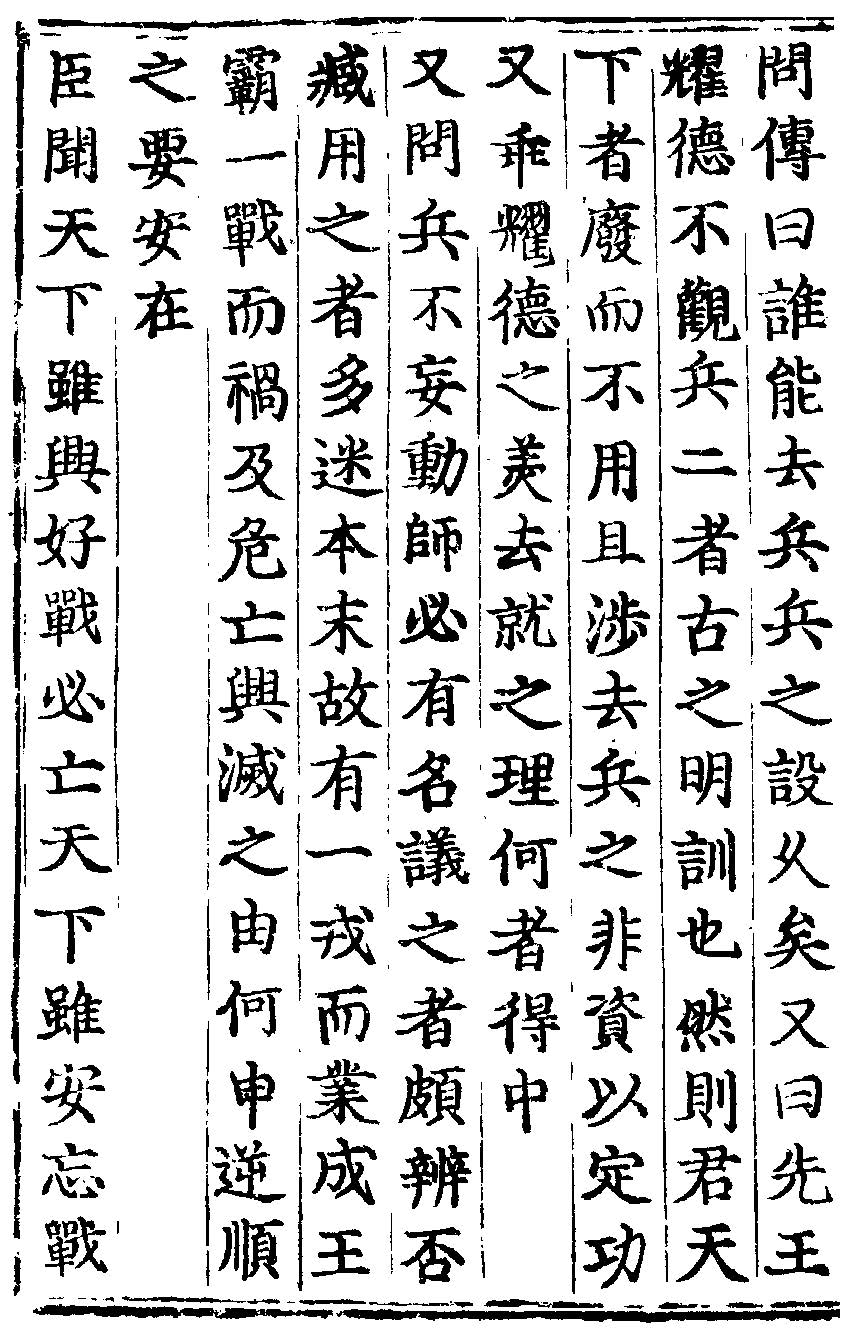 問傳曰誰能去兵兵之設乆矣又曰先王
耀德不觀兵二者古之明訓也然則君天
下者廢而不用且涉去兵之非資以定功
又乖耀德之美去就之理何者得中
又問兵不妄動師必有名議之者頗辨否
臧用之者多迷本末故有一戎而業成王
霸一戰而禍及危亡興滅之由何申逆順
之要安在
臣聞天下雖興好戰必亡天下雖安忘戰